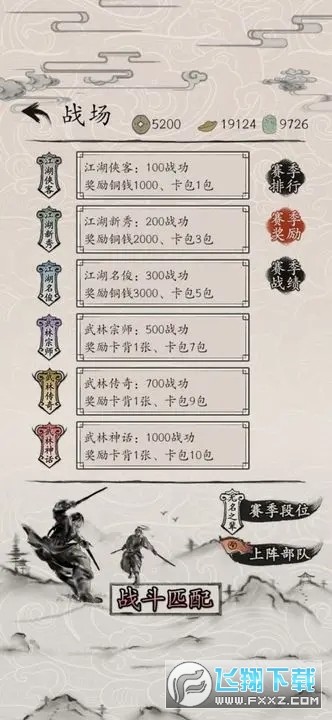 战场
5200
19124
9726
江湖侠客
江湖侠客：100战功
奖励铜钱1000、卡包1包
赛季
排行
江湖新秀
江湖新秀：200战功
奖励铜钱2000、卡包3包
赛季
奖励
江湖名俊
江湖名俊：300战功
奖励铜钱3000、卡包5包
赛季
战绩
武林宗师
武林宗师：500战功
奖励卡背1张、卡包7包
武林传奇
武林传奇：700战功
奖励卡背1张、卡包9包
武林神话
武林神话：1000战功
奖励卡背1张、卡包10包
无名之辈
赛季段位
上阵部队
战斗匹配
飞翔下载
WWW.FXXZ.COM